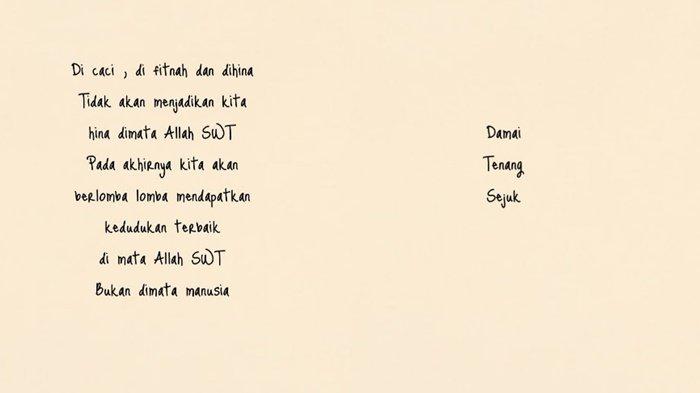 Di caci , di fitnah dan dihina
Tidak akan menjadikan kita
hina dimata Allah SWT
Pada akhirnya kita akan
berlomba lomba mendapatkan
kedudukan terbaik
di mata Allah SWT
Bukan dimata manusia
Damai
Tenang
Sejuk